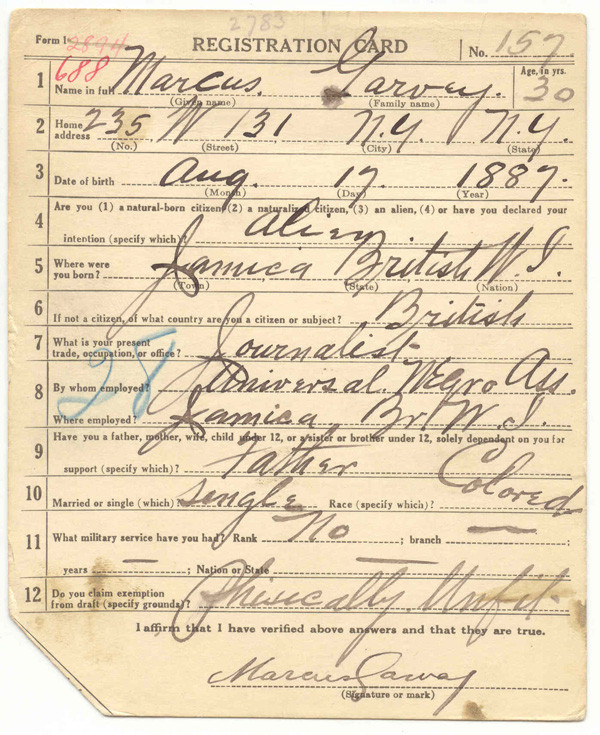 2783
Form 1 2894 REGISTRATION CARD No. 157
688
1 Name in full Marcus. Garvey. Age, in yrs. 30
(Given name) (Family name)
2 Home address 235 W 131 N.Y. N.Y.
(No.) (Street) (City) (State)
3 Date of birth Aug. 17. 1887.
(Month) (Day) (Year)
4 Are you (1) a natural-born citizen, (2) a naturalized citizen, (3) an alien, (4) or have you declared your
intention (specify which)? Alien
5 Where were you born? Jamica British W. I.
(Town) (State) (Nation)
6 If not a citizen, of what country are you a citizen or subject? British
7 What is your present trade, occupation, or office? Journalist
28
8 By whom employed? Universal. Negro Ass.
Where employed? Jamica, Br. W. I.
9 Have you a father, mother, wife, child under 12, or a sister or brother under 12, solely dependent on you for
support (specify which)? Father
10 Married or single (which)? Single Race (specify which)? Colored
11 What military service have you had? Rank No ; branch — ;
years — ; Nation or State —
12 Do you claim exemption from draft (specify grounds)? Phisically Unfit.
I affirm that I have verified above answers and that they are true.
Marcus Garvey
(Signature or mark)